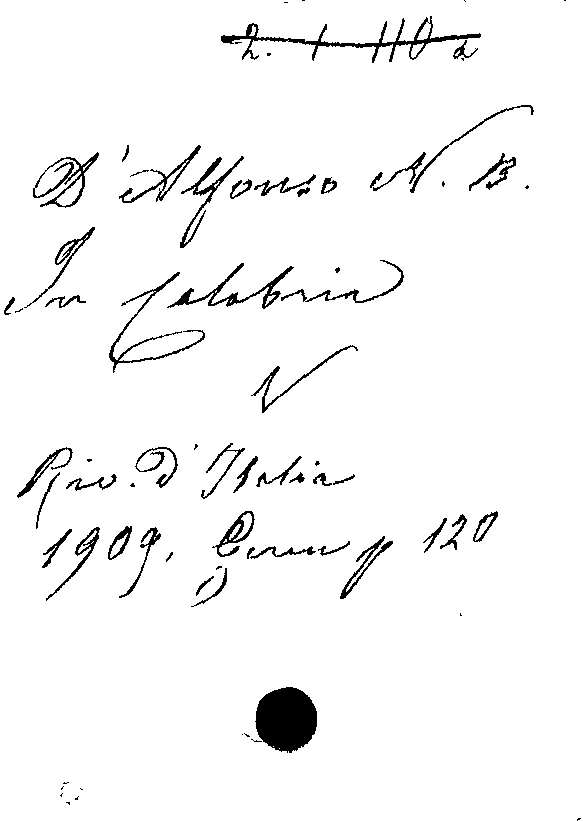 2. 1 110 a
D'Alfonso N. R.
In Calabria
V
Riv. d'Italia
1909, p 120